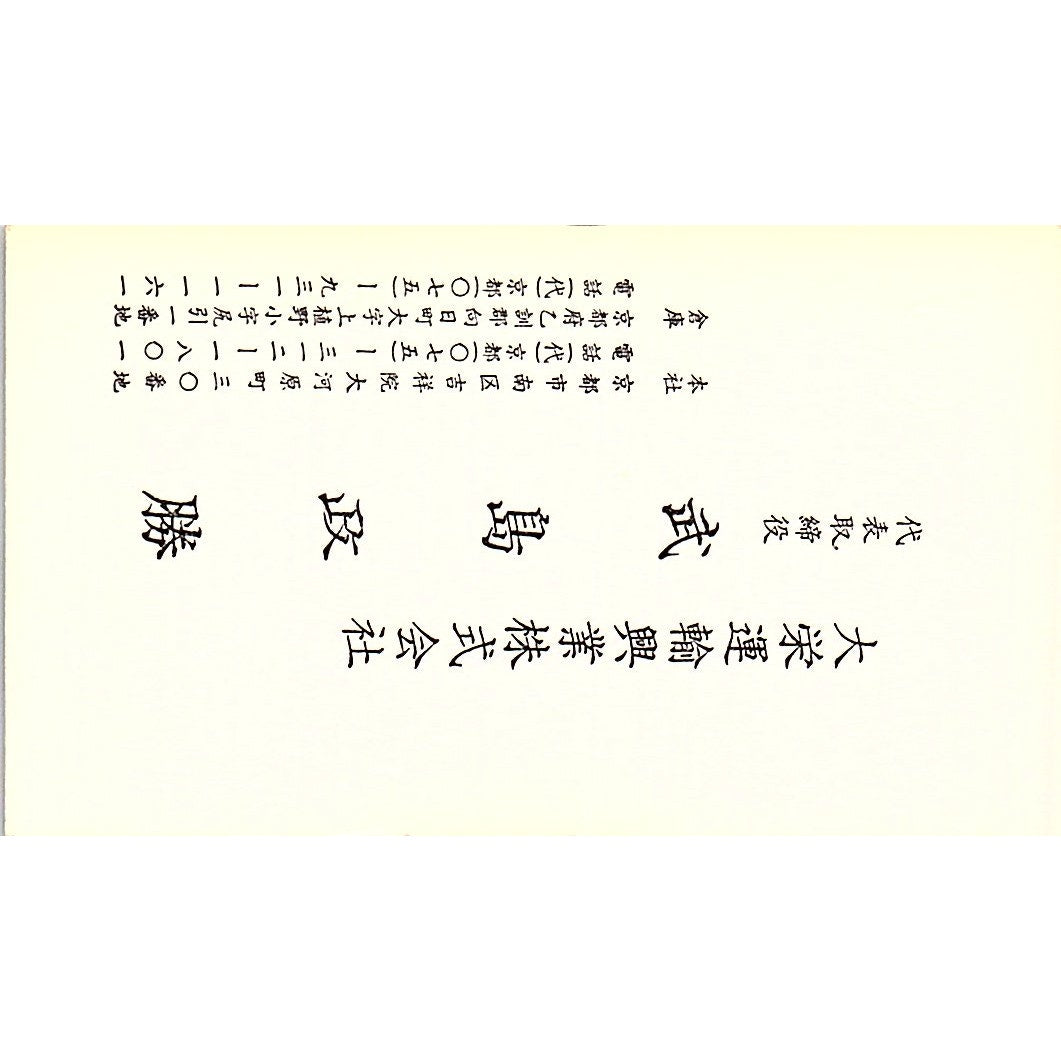 大栄運輸興業株式会社
代表取締役
武島政勝
本社 京都市南区吉祥院大河原町三〇番地
電話(代)京都(〇七五)ー三一二ー一八〇一
倉庫 京都府乙訓郡向日町大字上植野小字尻引一番地
電話(代)京都(〇七五)ー九三一ー一一六一